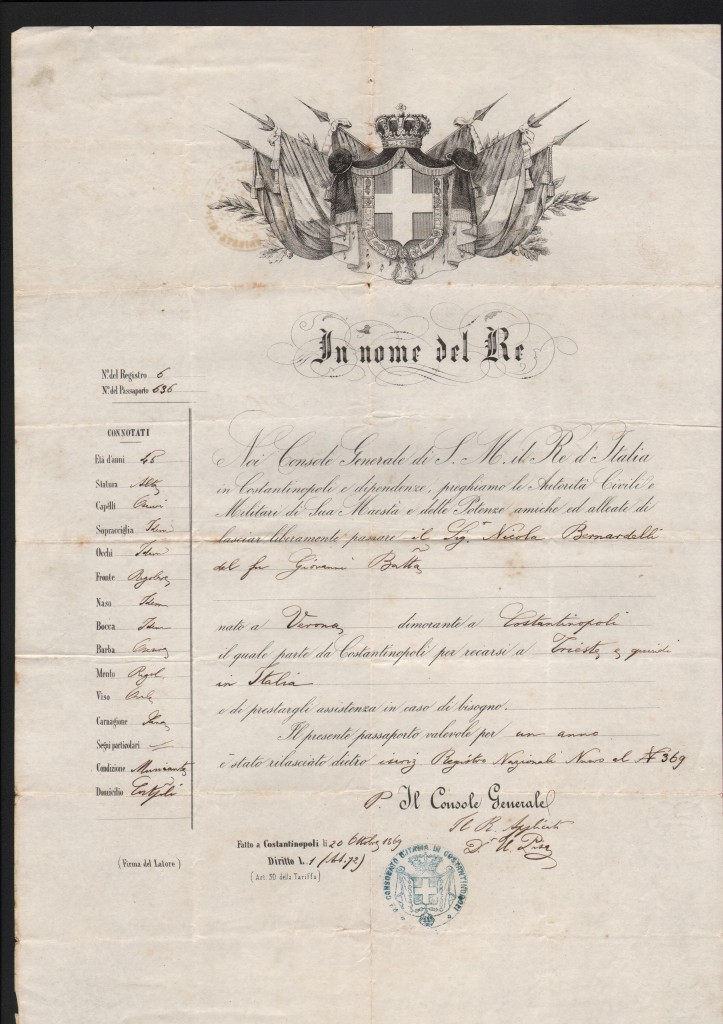 In nome del Re
N.º del Registro 6
N.º del Passaporto 636
CONNOTATI
Età d'anni 46
Statura Alta
Capelli Oscuri
Sopracciglia Idem
Occhi Idem
Fronte Regolare
Naso Idem
Bocca Idem
Barba Oscura
Mento Regol
Viso Ovale
Carnagione
Segni particolari
Condizione
Domicilio Costpoli
(Firma del Latore)
Noi Console Generale di S. M. il Re d'Italia
in Costantinopoli e dipendenze, preghiamo le Autorità Civili e
Militari di Sua Maestà e delle Potenze amiche ed alleate di
lasciar liberamente passare il Sig.r Nicola Bernardelli
del fu Giovanni Batta
nato a Verona dimorante a Costantinopoli
il quale parte da Costantinopoli per recarsi a Trieste e quindi
in Italia
e di prestargli assistenza in caso di bisogno.
Il presente passaporto valevole per un anno
è stato rilasciato dietro iscriz Registro Nazionali Nuovo al N 369
P. Il Console Generale
Il R. Applicato
Dr
Fatto a Costantinopoli li 20 Ottobre 1869
Diritto L. 1 (Art. 72)
(Art. 50 della Tariffa)
CONSOLATO D'ITALIA DI COSTANTINOPOLI